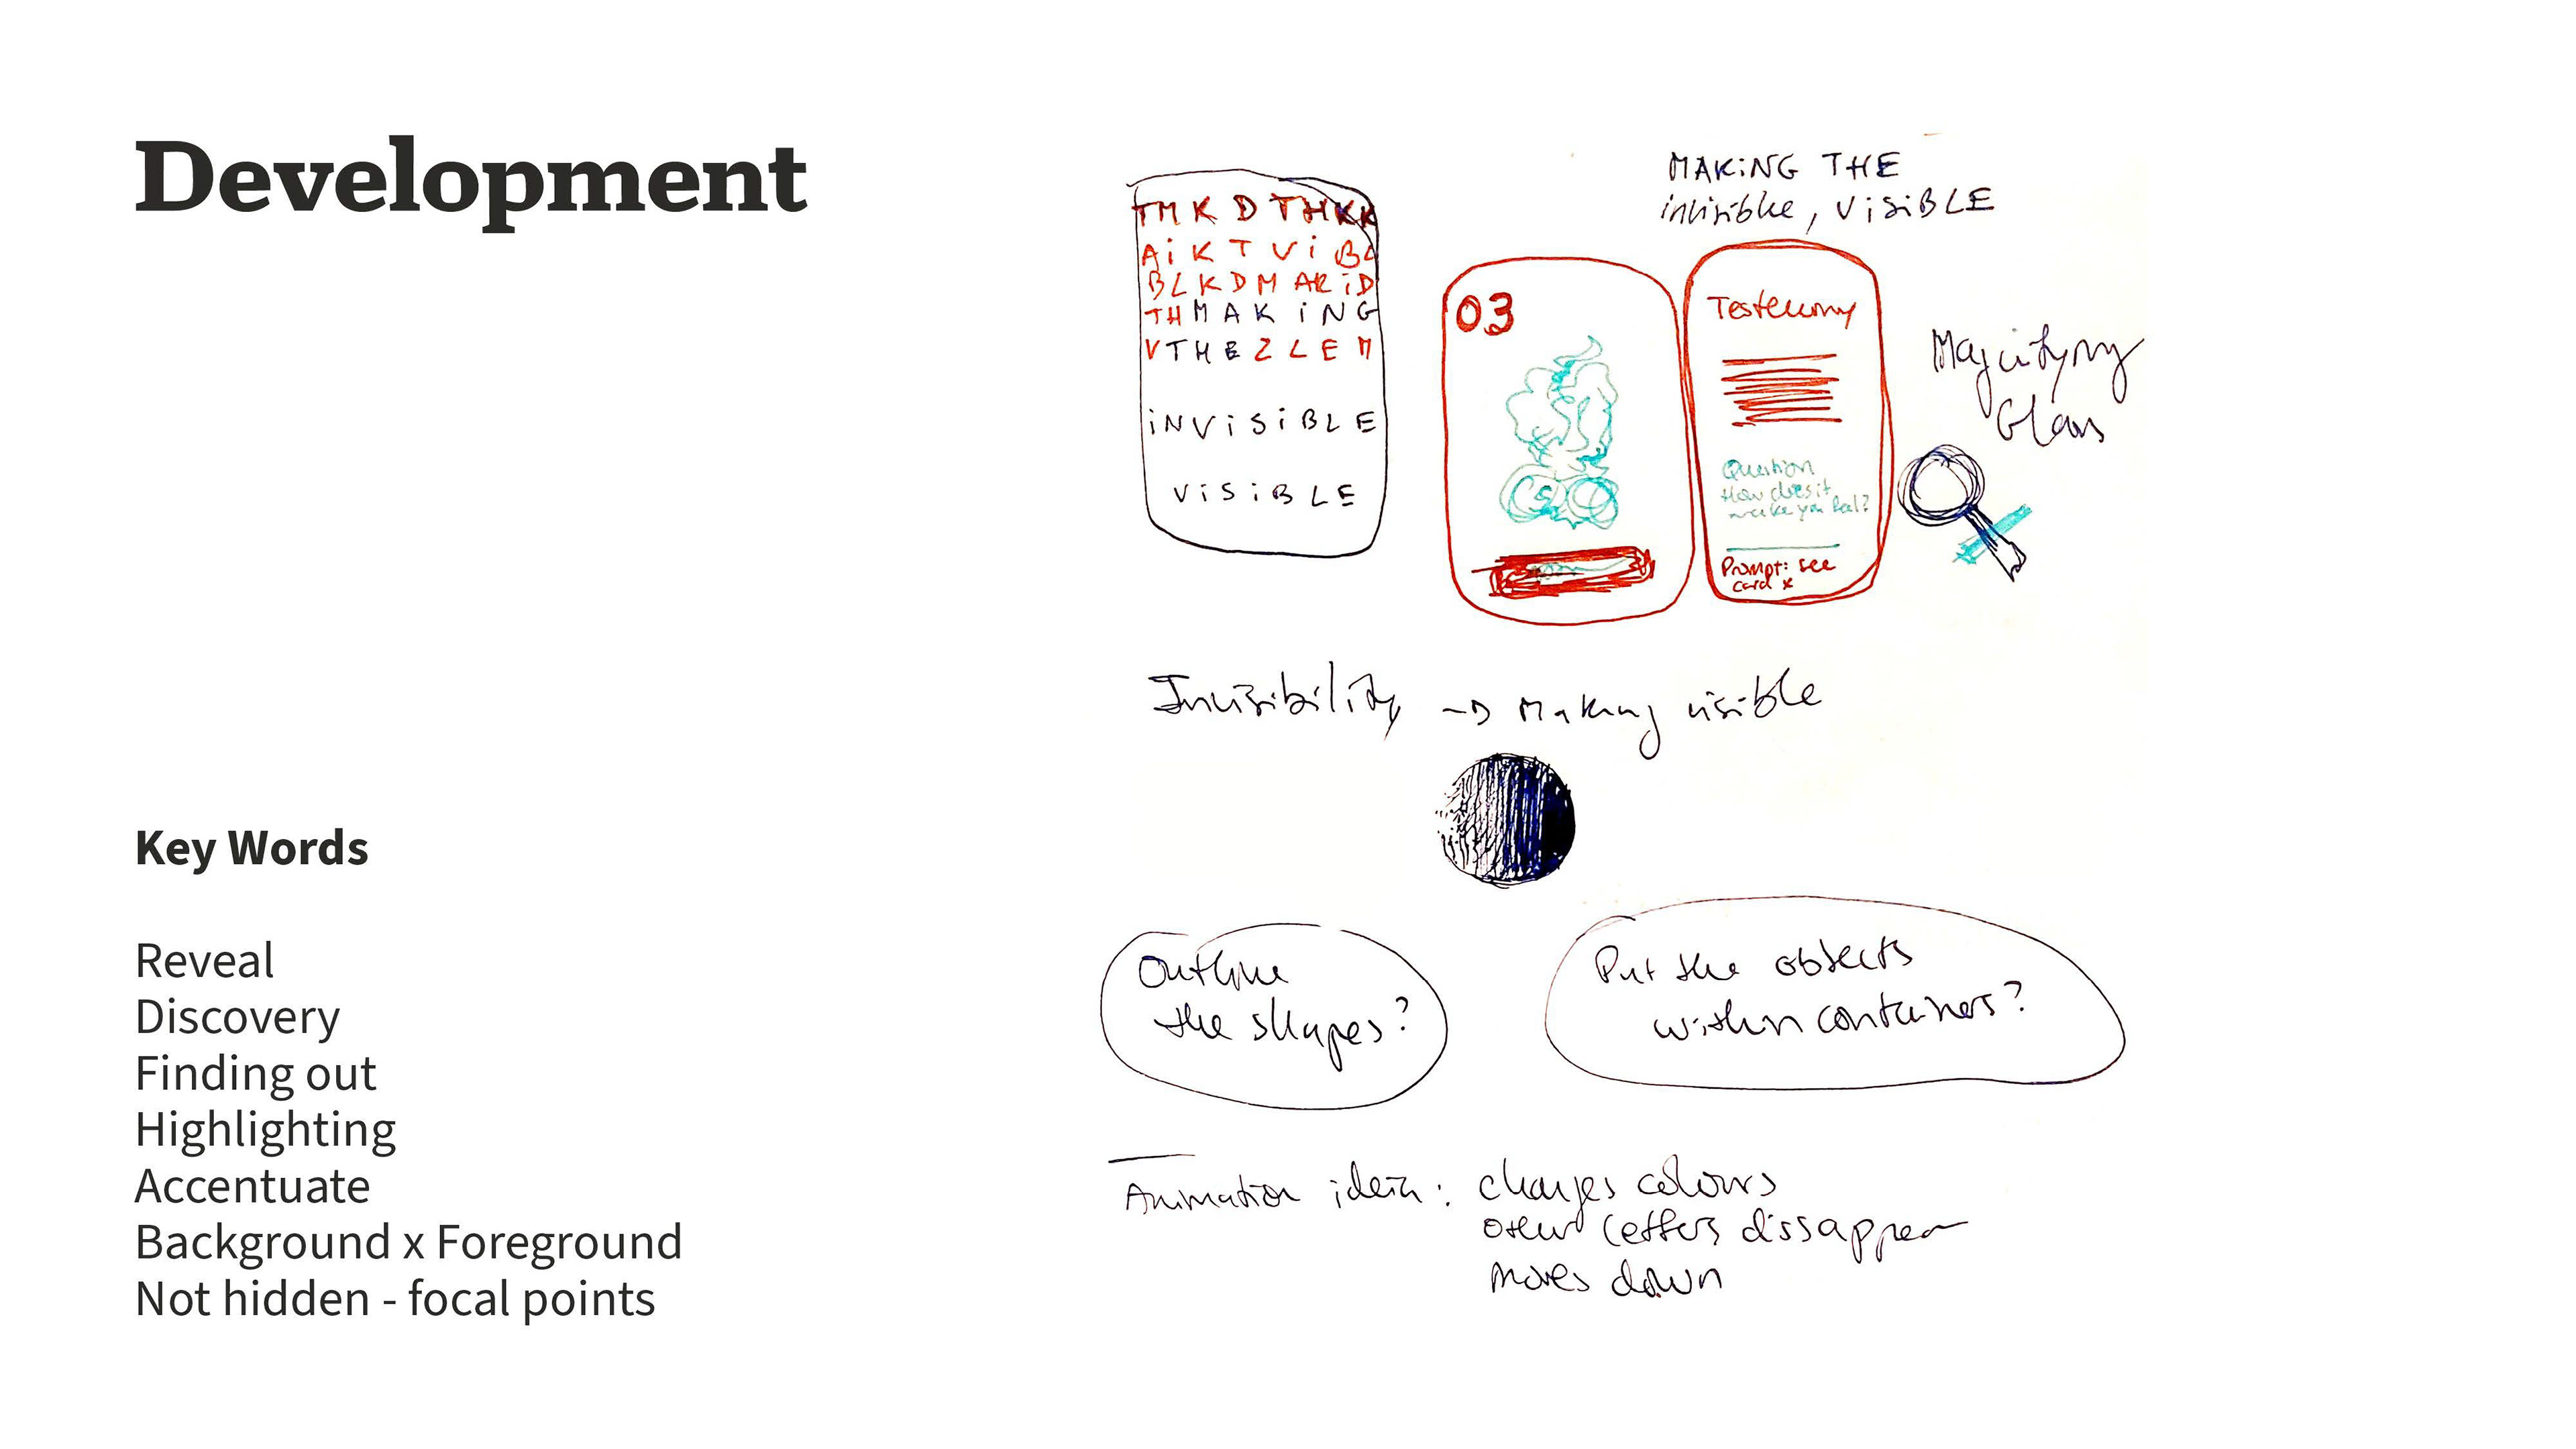 Development
Key Words
Reveal
Discovery
Finding out
Highlighting
Accentuate
Background x Foreground
Not hidden - focal points
MAKiNG THE
invisible, ViSiBLE
TMKDTHKK
AiKTViBL
BLKDMARiD
THMAKiNG
VTHEZLEM
iNViSiBLE
ViSiBLE
03
Testemony
Question
How does it
make you feel?
Prompt: see
card x
Glass
Invisibility → Making visible
Outline
the shapes?
Put the objects
within containers?
Animation idea: changes colours
other letters dissappear
moves down